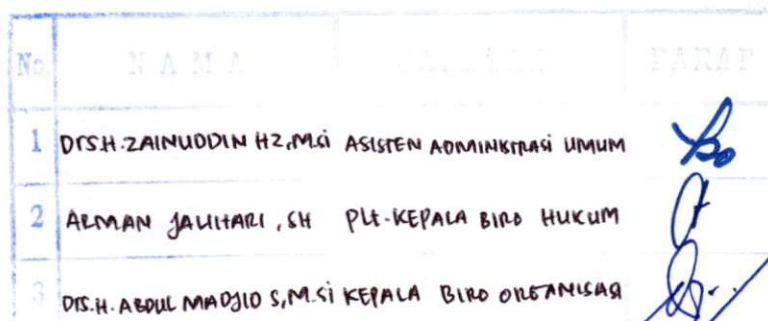 No. N A M A JABATAN PARAF
1 DRS.H. ZAINUDDIN HZ, M.Si ASISTEN ADMINISTRASI UMUM
2 ARMAN JAUHARI, SH PLt. KEPALA BIRO HUKUM
3 DRS. H. ABDUL MADJID S, M.Si KEPALA BIRO ORGANISASI